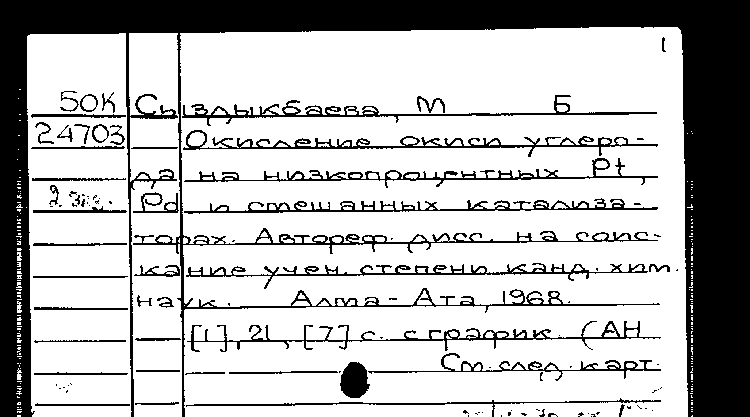 1
50К Сыздыкбаева, М Б
24703 Окисление окиси углеро-
да на низкопроцентных Pt,
2 экз. Pd и смешанных катализа-
торах. Автореф. дисс. на соис-
кание учен. степени канд. хим.
наук. Алма-Ата, 1968.
[1], 21, [7] с. с график. (АН
См. след. карт.